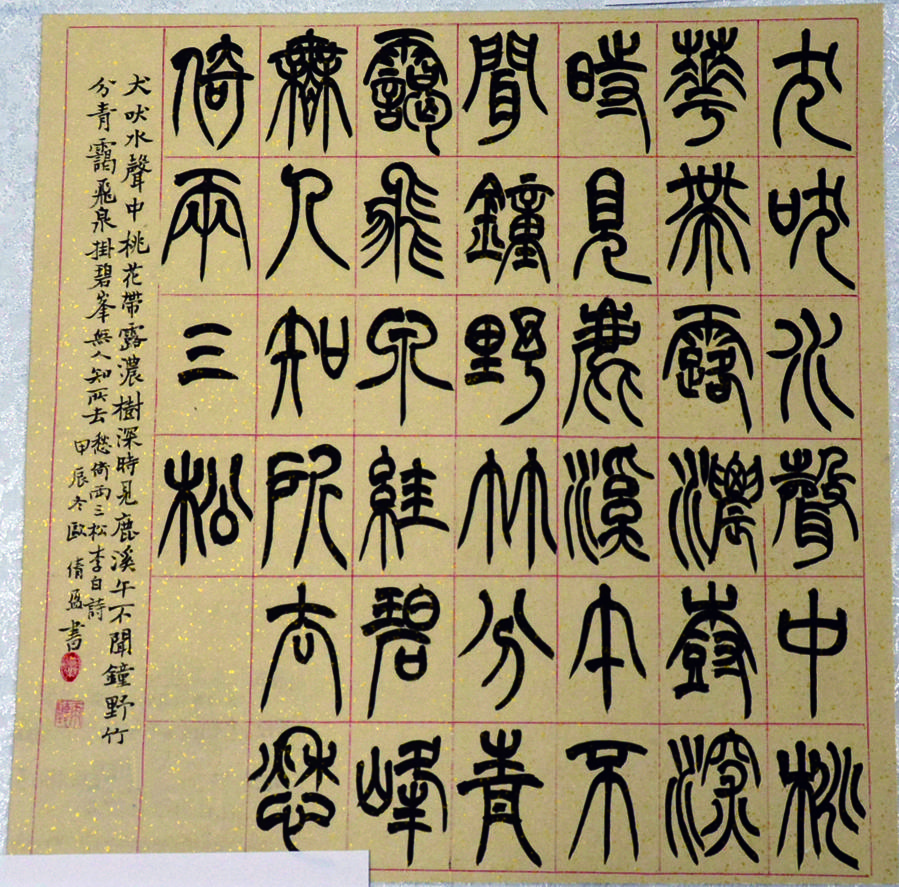 犬吠水聲中桃
華帶露濃樹深
時見鹿溪午不
聞鐘野竹分青
靄飛泉挂碧峰
無人知所去愁
倚兩三松
犬吠水聲中桃花帶露濃樹深時見鹿溪午不聞鐘野竹
分青靄飛泉掛碧峯無人知所去愁倚兩三松李白詩
甲辰冬歐倩盈書